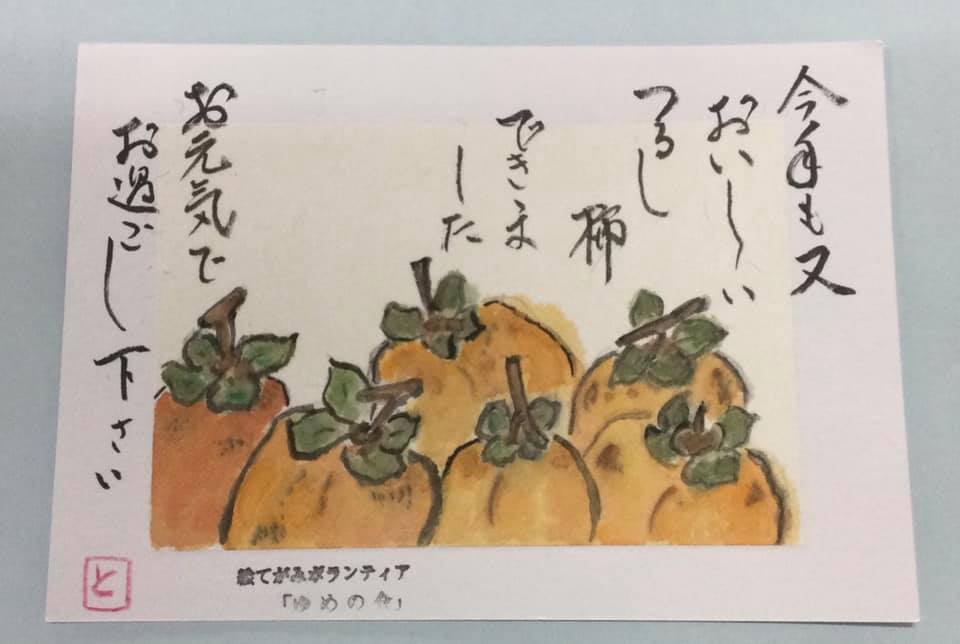 今年も又
おいしい
つるし
柿
できま
した
お元気で
お過ごし下さい
と
絵てがみボランティア
「ゆめの会」